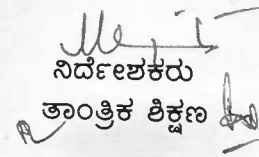 ನಿರ್ದೇಶಕರು
ತಾಂತ್ರಿಕ ಶಿಕ್ಷಣ